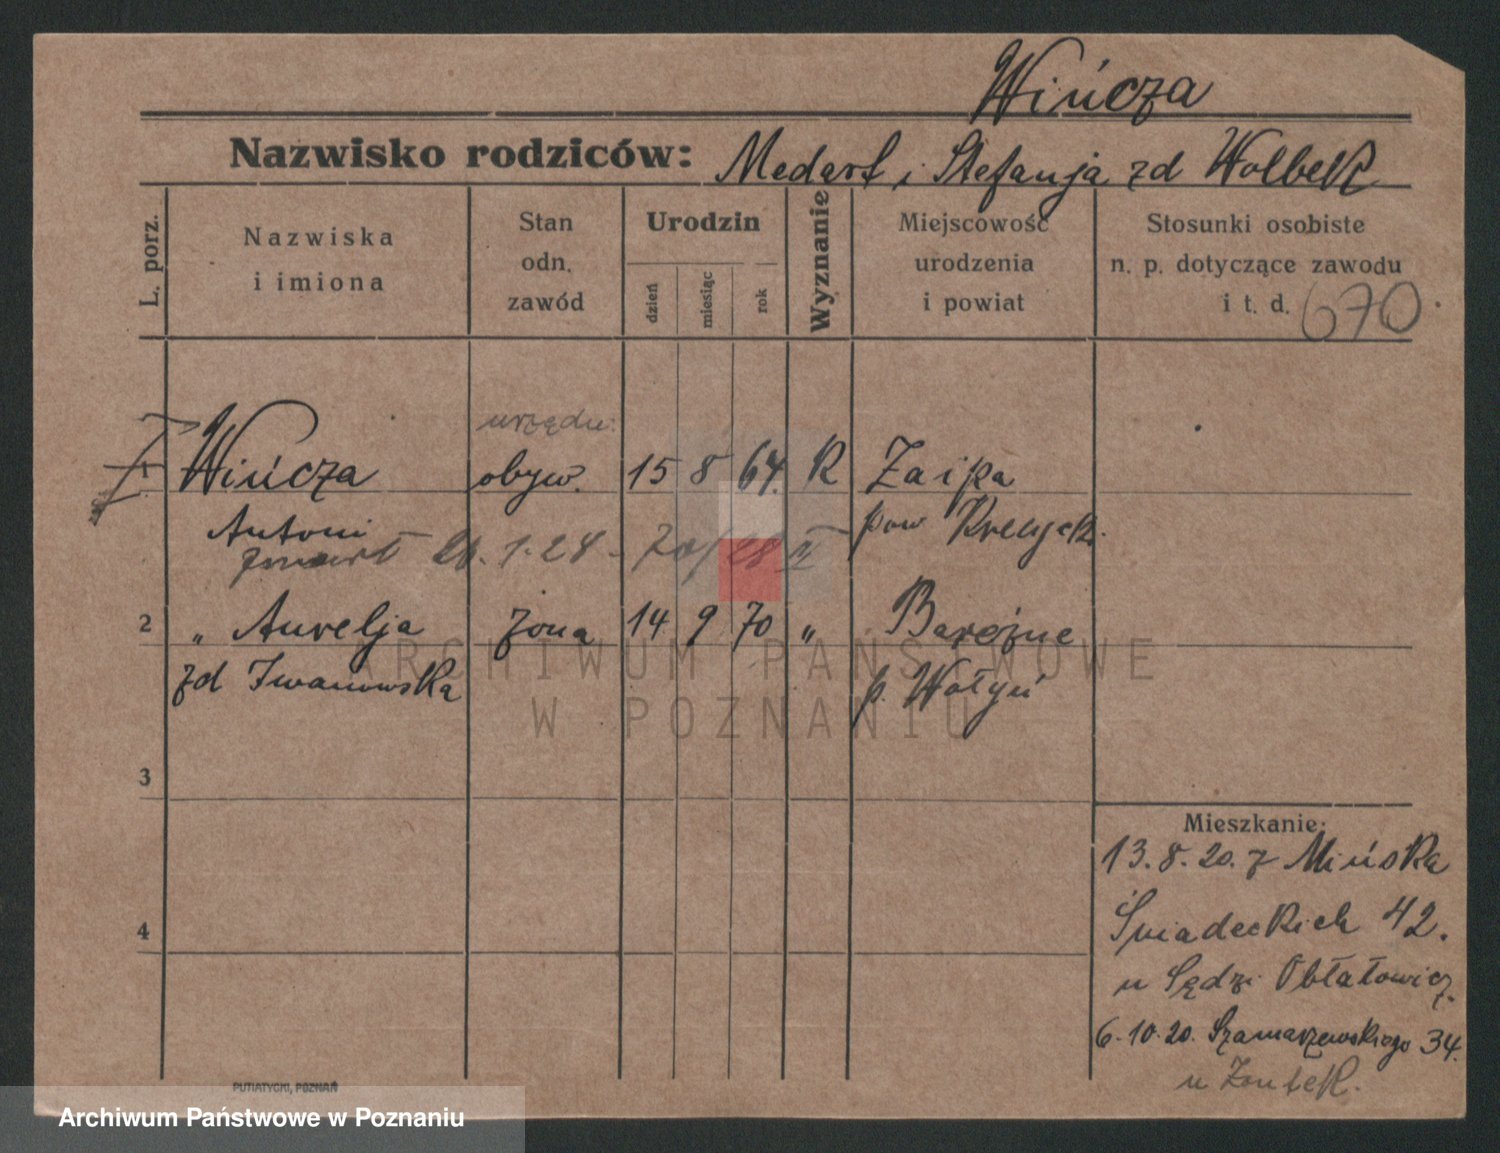 Wińcza
Nazwisko rodziców: Medart i Stefanja zd Wolbek
L. porz.
Nazwiska
i imiona
Stan
odn.
zawód
Urodzin
dzień
miesiąc
rok
Wyznanie
Miejscowość
urodzenia
i powiat
Stosunki osobiste
n. p. dotyczące zawodu
i t. d. 670.
urzędn.
1 Wińcza obyw. 15 8 64. R Zaika
Antoni pow
zmarł 1.24
2 „ Aurelja żona 14 9 70 „
zd Iwanowska p. Wołyń
3
4
Mieszkanie:
13.8.20. z Mińska
Śniadeckich 42.
u Sędzi Obłatowicz.
6.10.20. Szamarzewskiego 34.
u
PUTIATYCKI, POZNAŃ
ARCHIWUM PAŃSTWOWE
W POZNANIU
Archiwum Państwowe w Poznaniu